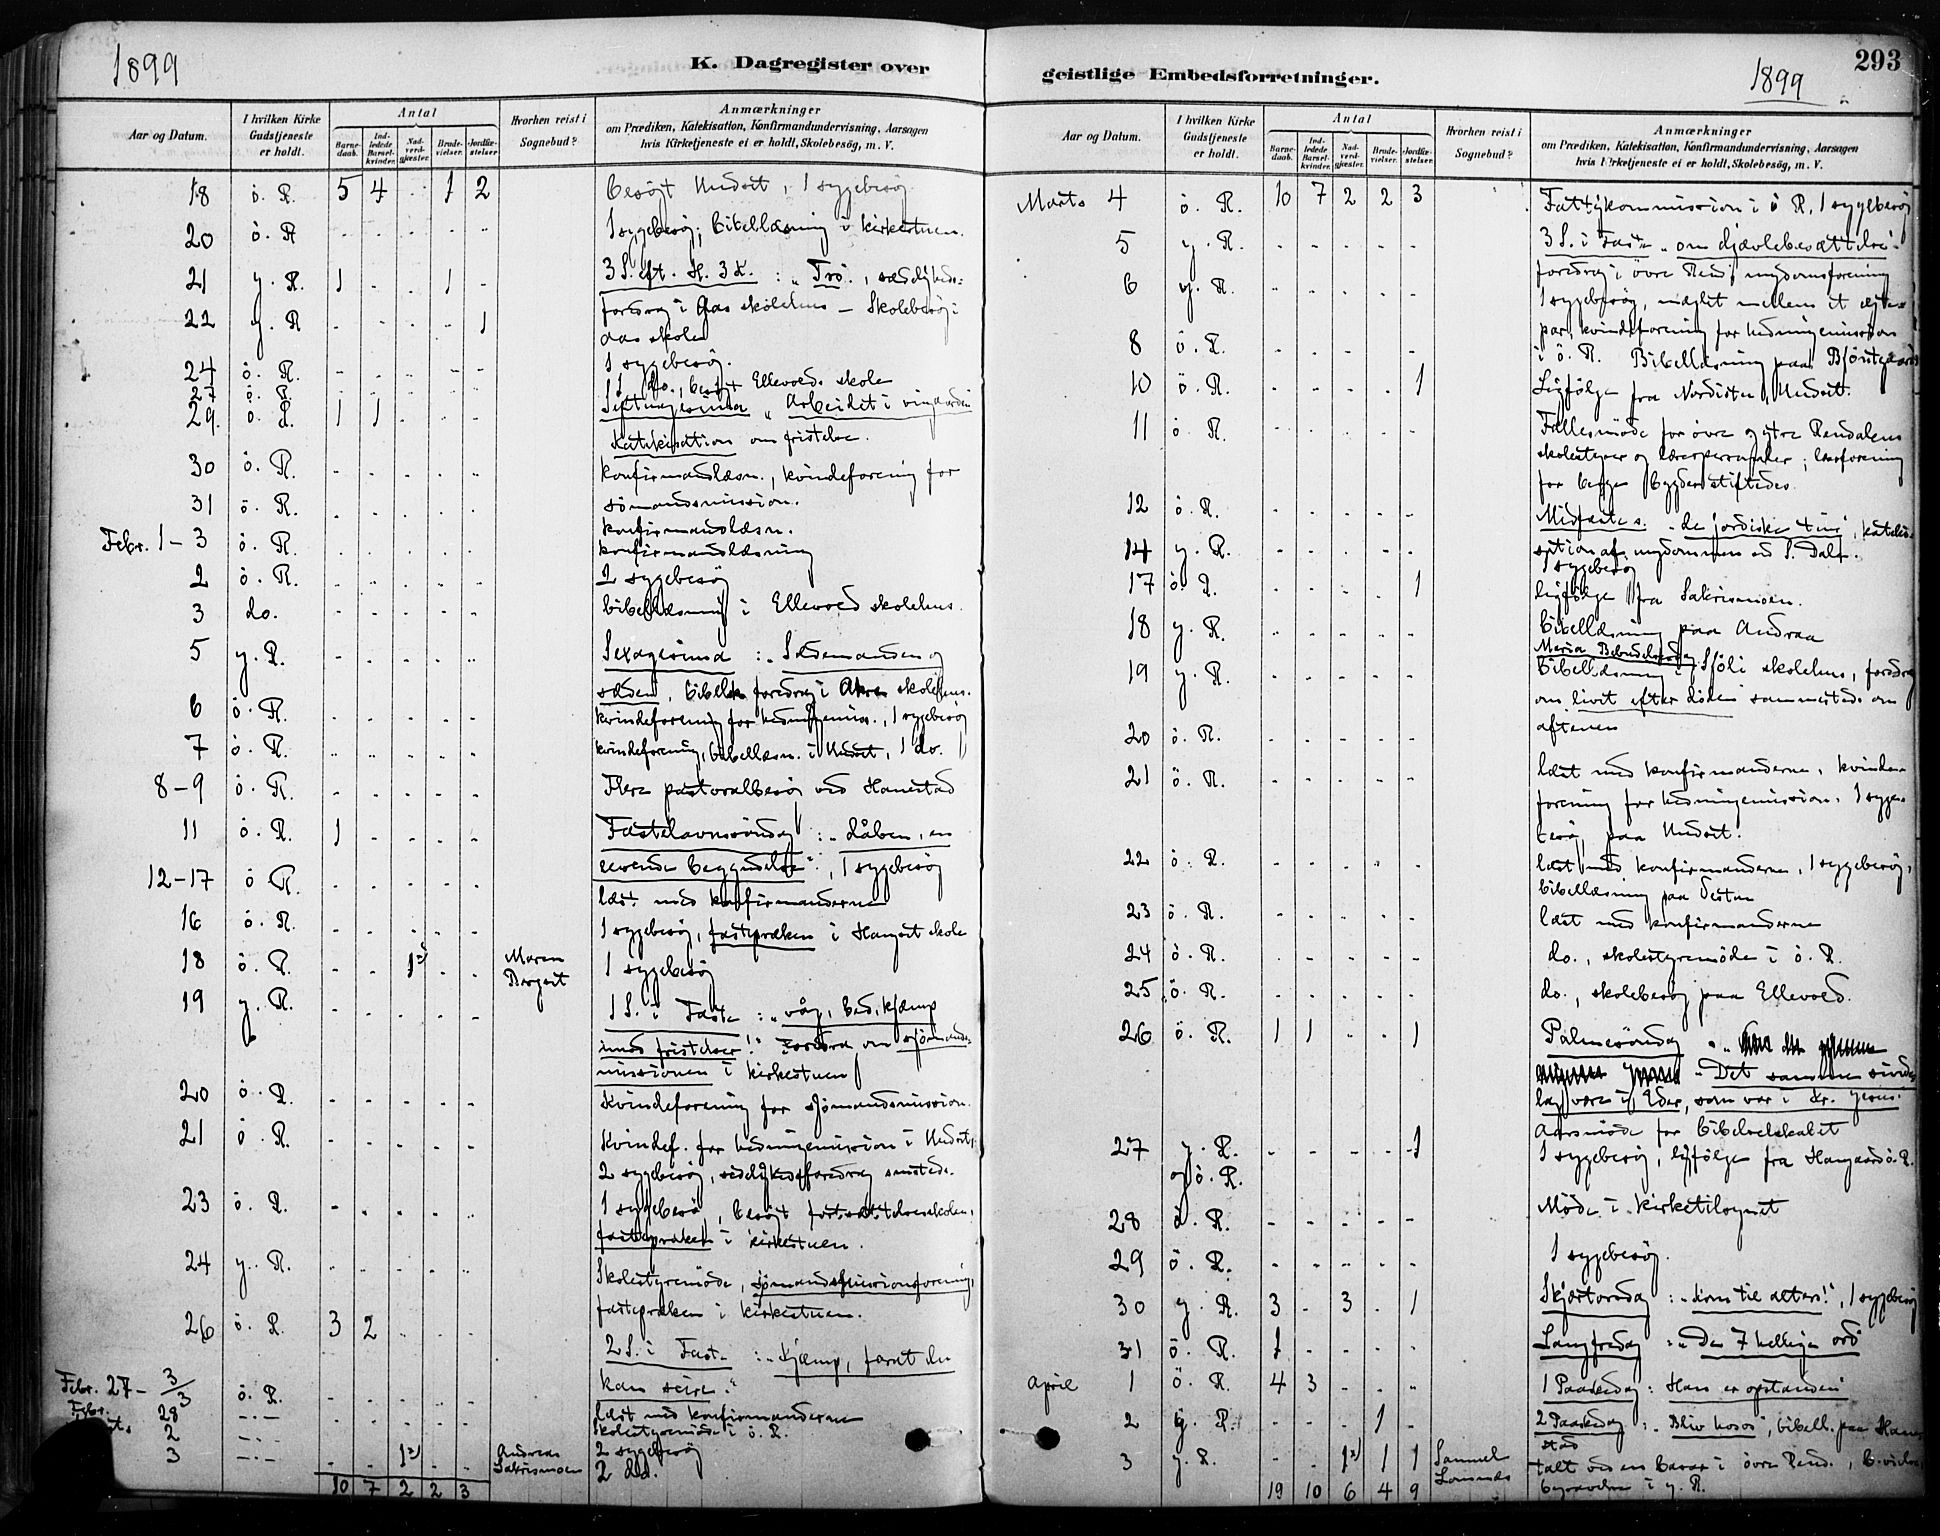 1899
K. Dagregister over
Aar og Datum.
I hvilken Kirke Gudstjeneste er holdt.
Antal
Barnedaab.
Indledede Barselkvinder.
Nadverdgjester.
Brudevielser.
Jordfæstelser.
Hvorhen reist i Sognebud?
Anmærkninger
om Prædiken, Katekisation, Konfirmandundervisning, Aarsagen
hvis Kirketjeneste ei er holdt, Skolebesøg, m. V.
18 ö. R. 5 4 . 1 2 besøgt Undset, 1 sygebesøg
20 ö. R 1 sygebesøg; bibellæsning i kirkestuen.
21 y. R. 1 . . 1 . 3 S. eft. H. 3 K. : "Tro", sædeligheds-
foredrag i Aas skolehus – Skolebesøg i
22 y. R . . . . 1 Aas skole
24 ö. R. 1 sygebesøg.
27 ö. R. 1 do., besøgt Ellevold skole
29. ö. R. 1 1 Septuagesima "Arbeidet i vingaarden
Katekisation om fristelse.
30 ö. R. konfirmandlæsn., kvindeforening for
sömandsmission.
31 ö. R. konfirmandlæsn.
Febr. 1 – 3 ö. R. konfirmandlæsning
2 ö. R. 2 sygebesøg
3 do. bibellæsning i Ellevold skolehus.
5 y. R. Sexagesima : "Sædemanden og
sæden, foredrag i Akre skolehus.
6 ö. R. kvindeforening for hedningemiss., 1 sygebesøg
7 ö. R. kvindeforening, bibellæsn. i Undset, 1 do.
8 – 9 ö. R. Flere pastoralbesøg ved Hanestad
11 ö. R. 1 Fastelavnssöndag : "dåben, en
levende begyndelse", 1 sygebesøg
12–17 ö R. læst med konfirmanderne
16 ö. R. 1 sygebesøg, fastepræken i Hangset skole
18 ö. R. . . 1 Maren Bergset 1 sygebesøg
19 y. R. 1 S. i Faste : "våg, bed, kjæmp
imod fristelser!" Foredrag om sjömands-
missionen i kirkestuen
20 ö. R. Kvindeforening for sjömandsmission.
21 ö. R. Kvindef. for hedningemission i Undset,
2 sygebesøg, sædelighedsforedrag samsteds.
23 ö. R. 1 sygebesø, besøgt fortsættelsesskolen,
fastepræken i kirkestuen.
24 y. R. Skolestyremöde, sjömandsmissionsforening,
fastepræken i kirkestuen.
26 ö. R. 3 2 2 S. i Faste : "Kjæmp, foront du
kan seire."
Febr. 27 – 3/3 ö. R. læst med konfirmanderne
Febr. 28 – . – skolestyremöde i ö. R.
2 – . – 2 sygebesøg
3 – . – 1 Andreas Sakrismoen 2 do.
10 7 2 2 3
geistlige Embedsforretninger.
1899
293
Aar og Datum.
I hvilken Kirke Gudstjeneste er holdt.
Antal
Barnedaab.
Indledede Barselkvinder.
Nadverdgjester.
Brudevielser.
Jordfæstelser.
Hvorhen reist i Sognebud?
Anmærkninger
om Prædiken, Katekisation, Konfirmandundervisning, Aarsagen
hvis Kirketjeneste ei er holdt, Skolebesøg, m. V.
Marts 4 ö. R. 10 7 2 2 3 Fattigkommission i ö R, 1 sygebesøg
5 y. R. 3 S. i Faste "om djævlebesættelse",
foredrag i övre Rend. ungdomsforening
6 y. R. 1 sygebesøg, mæglet mellem et ægte-
par, kvindeforening for hedningemission
8 ö. R. i ö. R. Bibellæsning paa
10 ö. R. . . . . 1 Ligfölge fra Nordistu, Undset.
11 ö. R. Fællesmöde for övre og ytre Rendalens
skolestyrer og lærerpersonaler; læreforening
for begge bygder stiftedes.
12 ö. R. Midfaste s. "de jordiske ting", kateki-
sation af ungdommen ved S. Dale.
14 y. R. 1 sygebesøg
17 ö. R. . . . . 1 ligfölge fra Sakrismoen.
18 y. R. bibellæsning paa Andraa
19 y. R. Maria Bebudelsesdag
bibellæsning i Sjöli skolehus, foredrag
om livet efter döden sammesteds om
aftenen
20 ö. R.
21 ö. R. læst med konfirmanderne, kvinde-
forening for hedningemission, 1 syge-
besøg paa Undset.
22 ö. R. læst med konfirmanderne, 1 sygebesøg,
bibellæsning paa
23 ö. R. læst med konfirmanderne
24 ö. R. do., skolestyremöde i ö. R.
25 ö. R. do., skolebesøg paa Ellevold.
26 ö. R. 1 1 . . 1 Palmesöndag
"Det samme sinde-
lag være i Eder, som var i Kr. Jesus."
Aarsmöde for bibelselskabet
27 y. R. og ö. R. . . . . 1 1 sygebesøg, ligfölge fra Hangaard ö. R.
28 ö. R. Möde i kirketilsynet
29 ö. R. 1 sygebesøg.
30 y. R. 3 . 3 . 1 Skjærtorsdag : "kom til alters!", 1 sygebesøg
31 ö. R. 1 Langfredag : "De 7 hellige ord"
April 1 ö. R. 4 3 1 Paaskedag : Han er opstanden"
2 y. R. . . . 1 . 2 Paaskedag : "Bliv hos os", bibell. paa Hane-
stad
3 y. R. . . 1 1 1 Samuel talt ved en basar i övre Rend.,
begravelse i y. R.
19 10 6 4 9